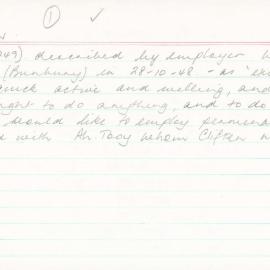 ①
049) described by employer
(Bunbury) in 28-10-48 - as
quick active and willing, and
ght to do anything, and to do
would like to employ
with Ah Tooy whom Clifton